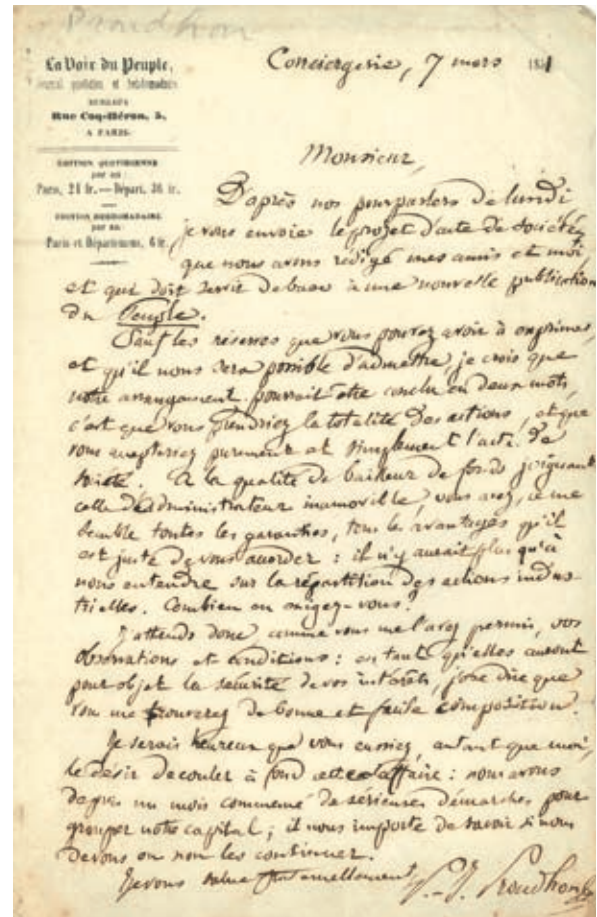 Proudhon
La Voix du Peuple,
Journal quotidien et hebdomadaire
BUREAUX
Rue Coq-Héron, 5,
A PARIS.
ÉDITION QUOTIDIENNE
par an :
Paris, 24 fr. — Départ. 36 fr.
ÉDITION HEBDOMADAIRE
par an :
Paris et Départements, 6 fr.
Conciergerie, 7 mars 1851
Monsieur,
D'après nos pourparlers de lundi,
je vous envoie le projet d'acte de société,
que nous avons rédigé mes amis et moi,
et qui doit servir de base à une nouvelle publication
du Peuple.
Sauf les réserves que vous pouvez avoir à exprimer,
et qu'il nous sera possible d'admettre, je crois que
notre arrangement pourrait être conclu en deux mots,
c'est que vous prendriez la totalité des actions, et que
vous accepteriez purement et simplement l'acte de
société. A la qualité de bailleur de fonds joignant
celle d'administrateur inamovible, vous avez, ce me
semble toutes les garanties, tous les avantages qu'il
est juste de vous accorder : il n'y aurait plus qu'à
nous entendre sur la répartition des actions indus-
trielles. Combien en exigez-vous ?
J'attends donc, comme vous me l'avez permis, vos
observations et conditions : en tant qu'elles auront
pour objet la sécurité de vos intérêts, j'ose dire que
vous me trouverez de bonne et facile composition.
Je serais heureux que vous eussiez, autant que moi,
le désir de couler à fond cette affaire : nous avons
depuis un mois commencé de sérieuses démarches pour
grouper notre capital ; il nous importe de savoir si nous
devons ou non les continuer.
Je vous salue fraternellement,
P.-J. Proudhon